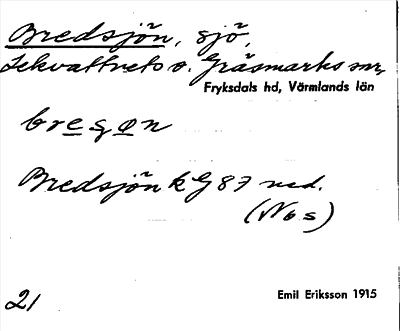 Bredsjön, sjö,
Lekvattnets o. Gräsmarks snr,
Fryksdals hd, Värmlands län
bregøn
Bredsjön k G 87 ned.
(No s)
21
Emil Eriksson 1915